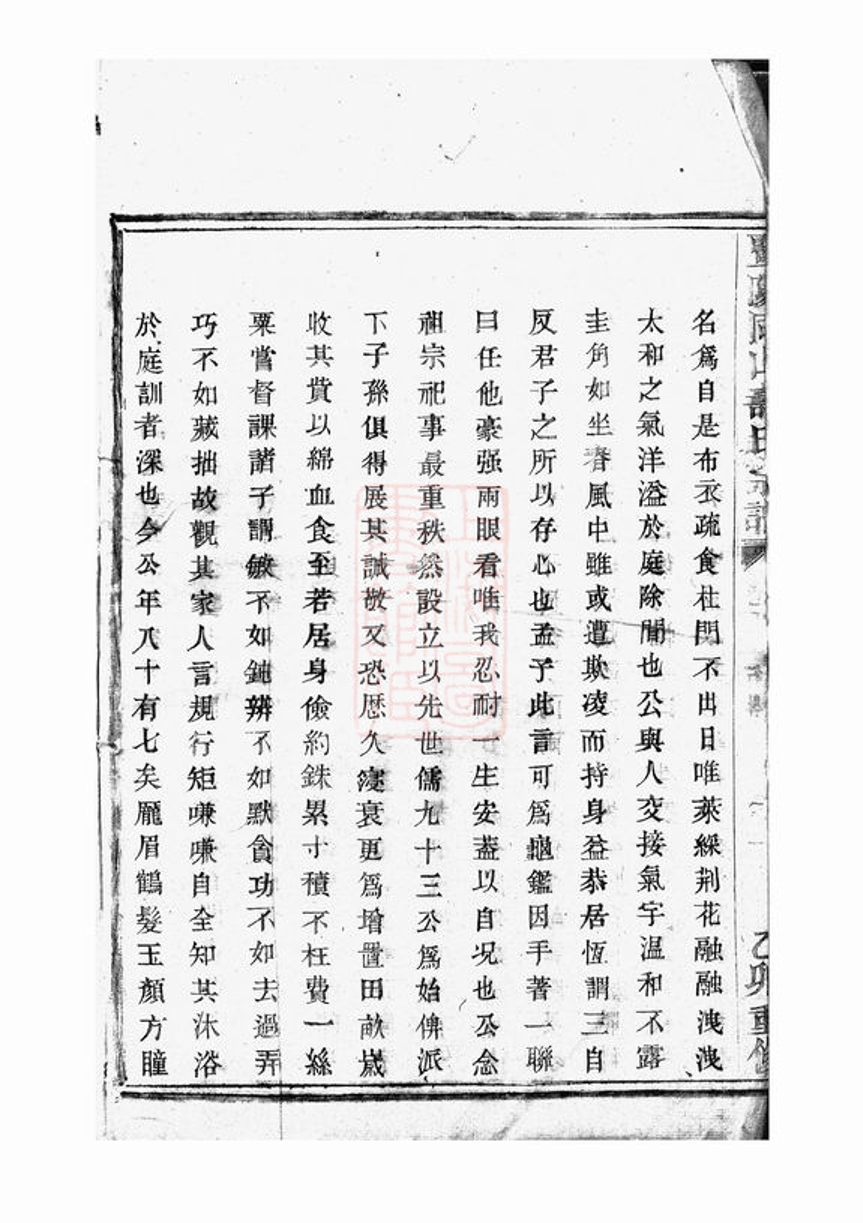 名爲自是布衣疏食杜門不出日唯萊綵荆花融融洩洩
太和之氣洋溢於庭除間也公與人交接氣宇温和不露
圭角如坐春風中雖或遭欺凌而持身益恭居恆謂三自
反君子之所以存心也孟子此言可爲龜鑑因手著一聯
曰任他豪强兩眼看唯我忍耐一生安葢以自况也公念
祖宗祀事最重秩然設立以先世儒九十三公爲始俾派
下子孫俱得展其誠敬又恐歷久寖衰更爲增置田畝歲
收其貲以綿血食至若居身儉約銖累寸積不枉費一絲
粟嘗督課諸子謂敏不如鈍辨不如默貪功不如去過弄
巧不如藏拙故觀其家人言規行矩嗛嗛自全知其沐浴
於庭訓者深也今公年八十有七矣厖眉鶴髮玉顏方瞳
乙夘重修